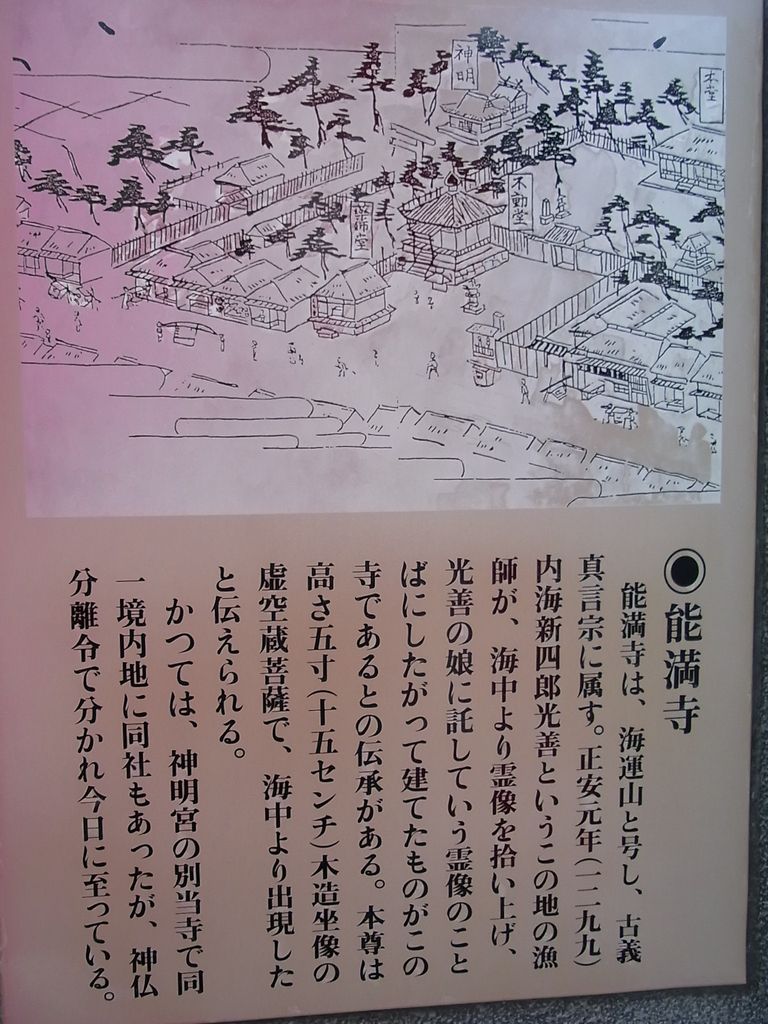 神明
本堂
不動堂
薬師堂
◉能満寺
能満寺は、海運山と号し、古義
真言宗に属す。正安元年(一二九九)
内海新四郎光善というこの地の漁
師が、海中より霊像を拾い上げ、
光善の娘に託していう霊像のこと
ばにしたがって建てたものがこの
寺であるとの伝承がある。本尊は
高さ五寸(十五センチ)木造坐像の
虚空蔵菩薩で、海中より出現した
と伝えられる。
かつては、神明宮の別当寺で同
一境内地に同社もあったが、神仏
分離令で分かれ今日に至っている。